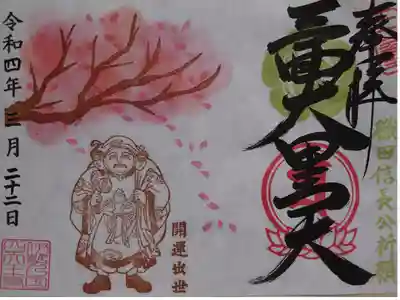 奉拝
織田信長公祈願
三面大黒天
開運出世
令和四年三月二十二日